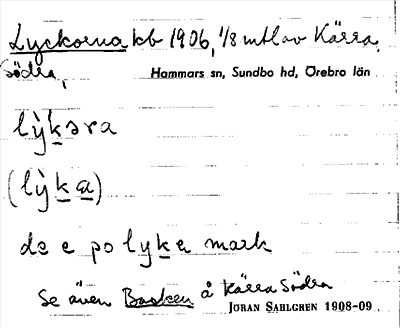 Lyckorna kb 1906, 1/8 mtl av Kärra
Södra,
Hammars sn, Sundbo hd, Örebro län
lỳkəra
(lỳka)
de e po lyka mark
Se även Backen å Kärra Södra
JÖRAN SAHLGREN 1908-09